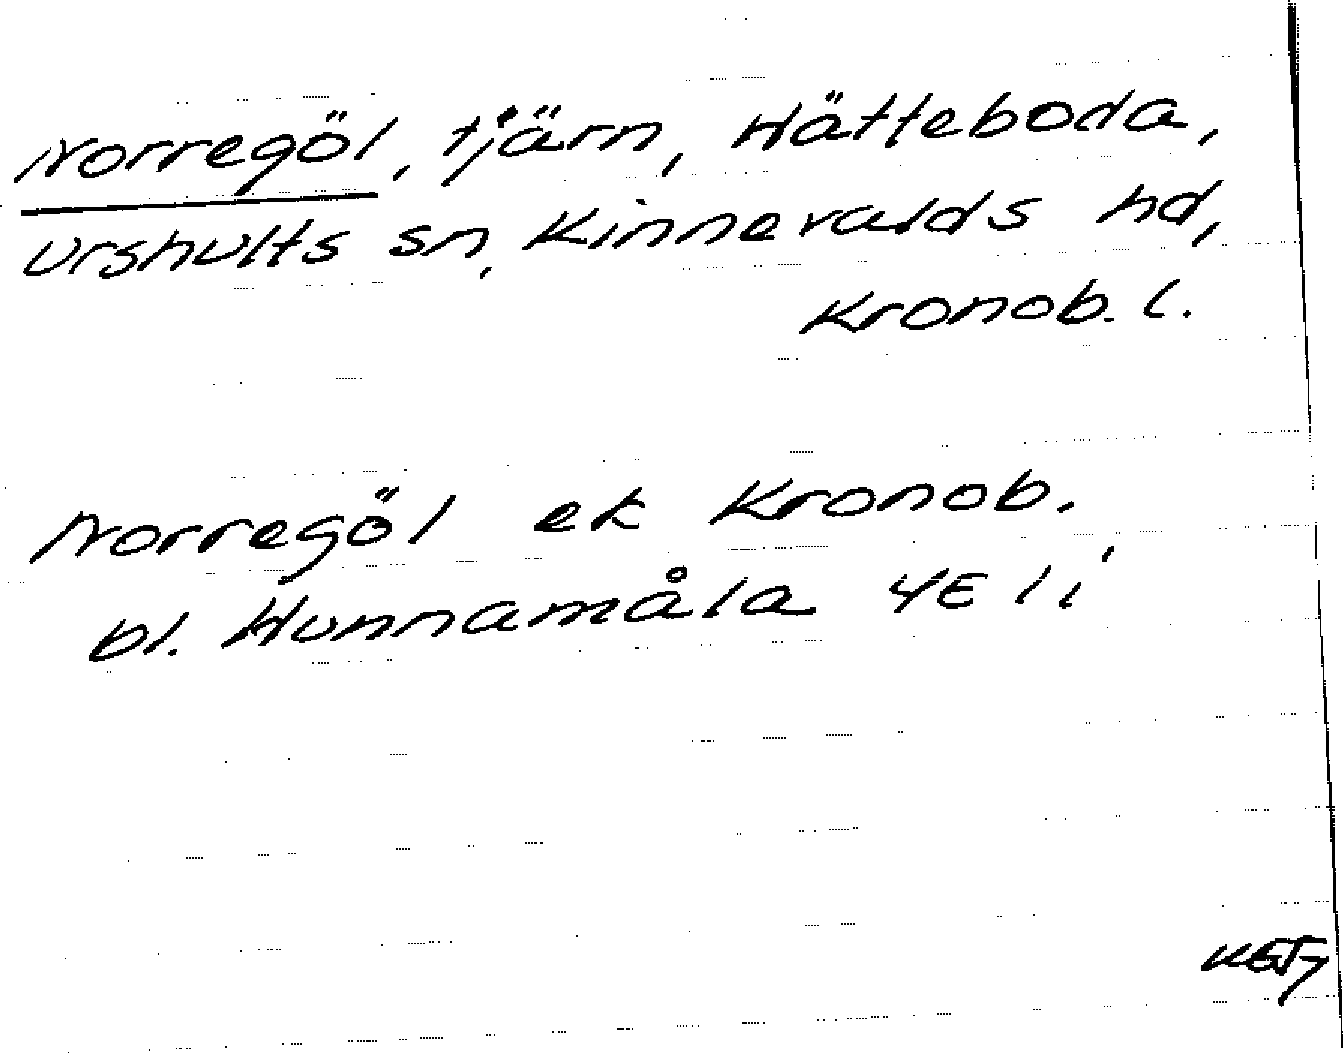 Norregöl, tjärn, Hätteboda,
Urshults sn, Kinnevalds hd,
Kronob. l.
Norregöl ek Kronob.
bl. Hunnamåla 4E 1 i